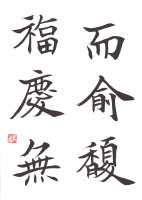 而俞馥
福慶無